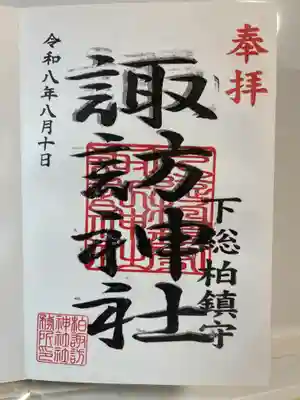 奉拝
下総柏鎮守
諏訪神社
令和八年八月十日
柏諏訪
神社社
務所印